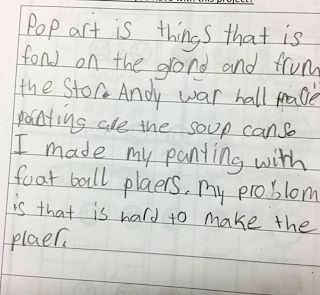 Pop art is things that is
fond on the grond and frum
the Stor. Andy war hall made
panting are the soup canse
I made my panting with
foat ball plaers. My problom
is that is hard to make the
plaer.